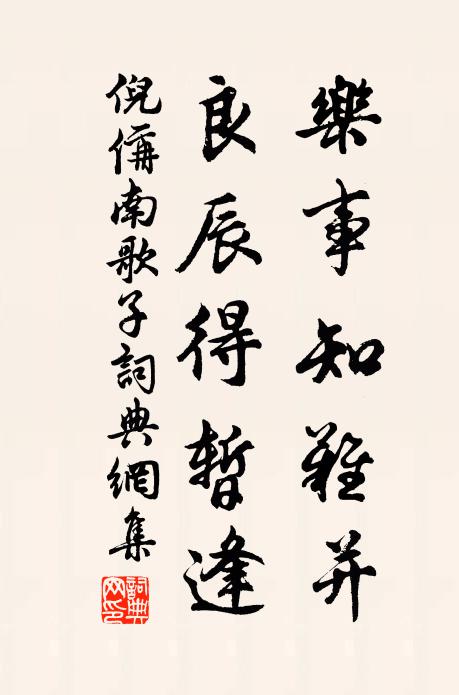 樂事知難并
良辰得暫逢
倪偁南歌子詞典網集
詞典網印